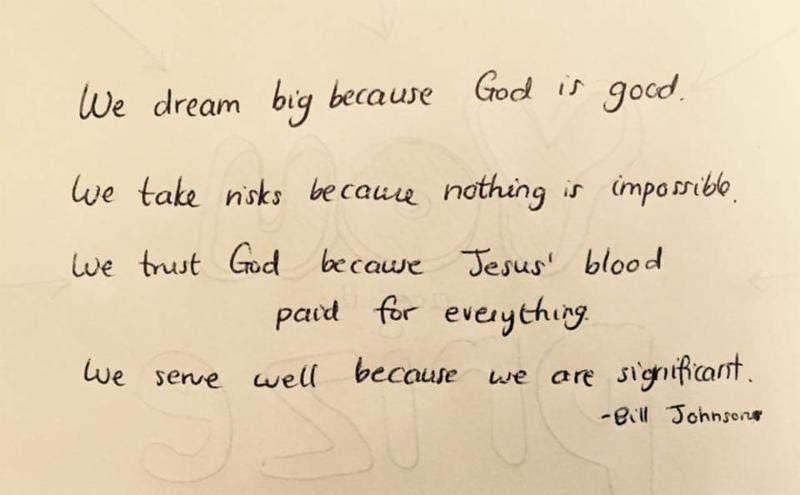 We dream big because God is good.
We take risks because nothing is impossible.
We trust God because Jesus' blood
paid for everything.
We serve well because we are significant.
-Bill Johnson